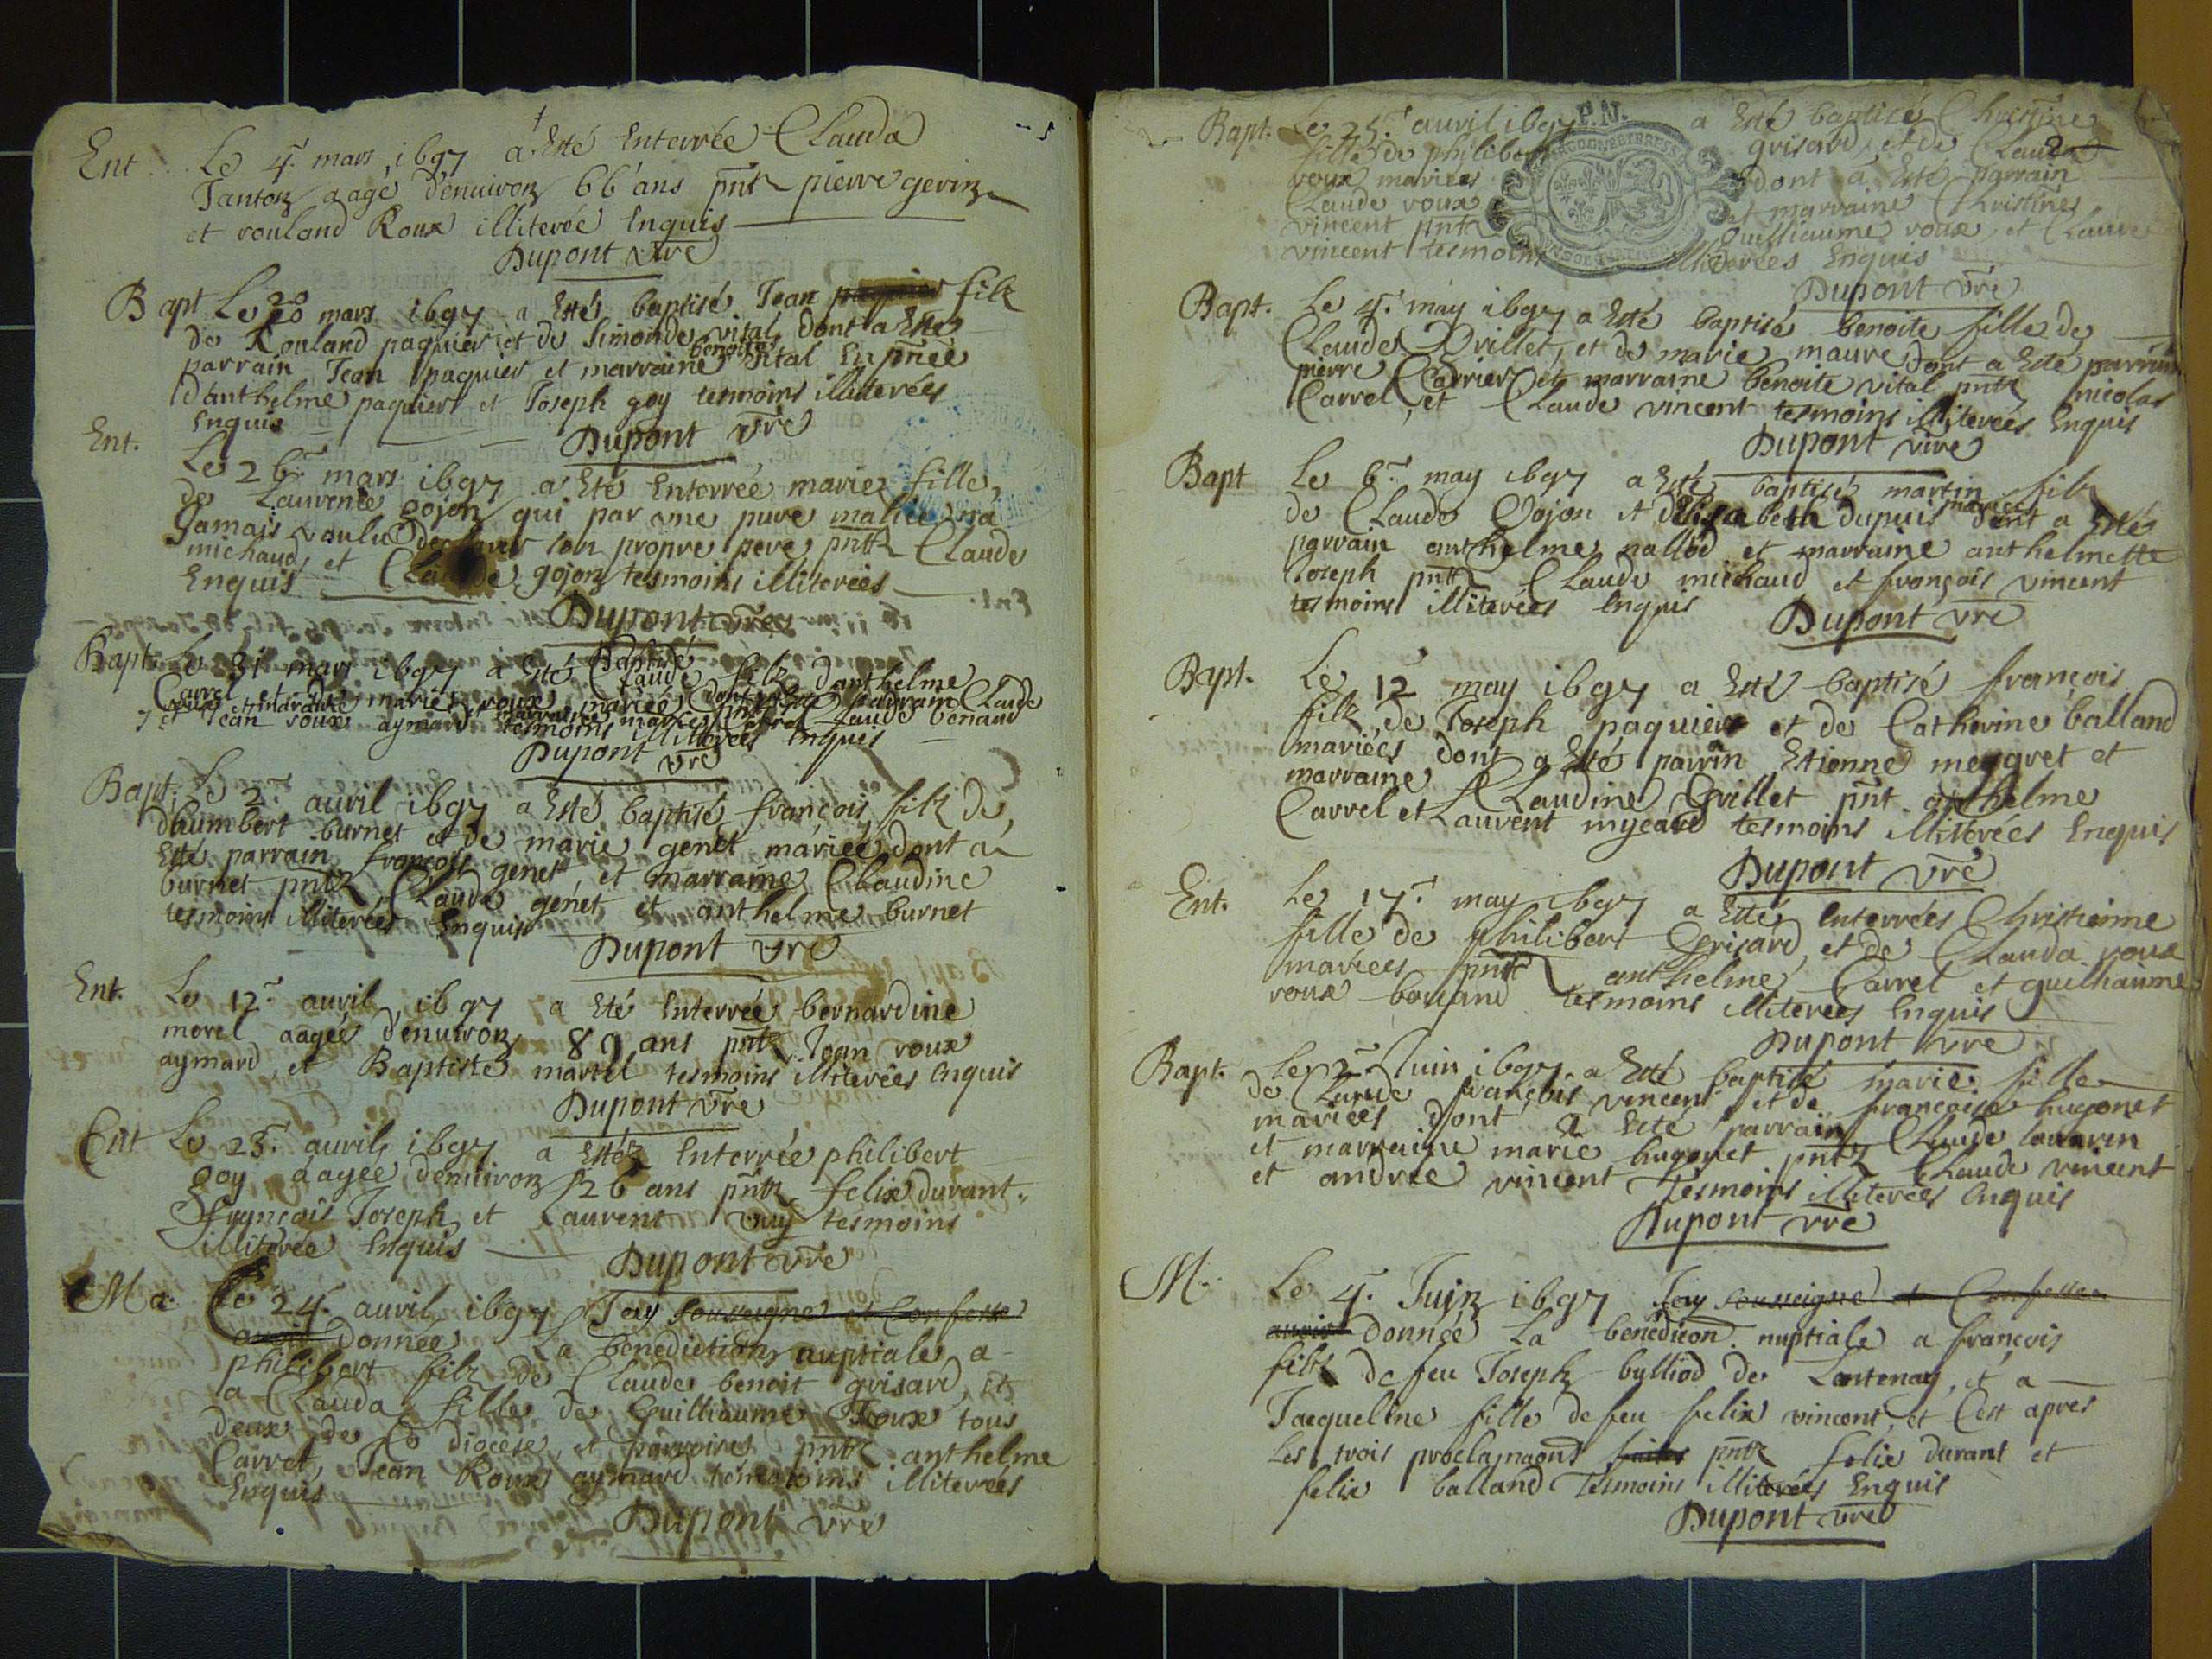 Ent. Le 4e mars 1697 a Esté Enterrée Clauda
Janton aagé d'enuiron 66 ans pntz pierre gerin
et rouland Roux illiterée Enquis
Dupont vre
Bapt Le 20 mars 1697 a Esté baptisé Jean filz
de Rouland paquier et de Simonde vital dont a Esté
parrain Jean paquier et marraine benoite vital En pnce
d'anthelme paquier et Joseph goy tesmoins illiterées
Enquis
Dupont vre
Ent. Le 26e mars 1697 a Eté Enterrée marie fille
de Laurence gojon qui par une pure malice n'a
Jamais voulu declarer son propre pere pntz Claude
michaud et Claude gojon tesmoins illiterées
Enquis
Dupont vre
Bapt. Le 31e mars 1697 a Esté Baptisé Claude filz d'anthelme
Carrel et de marie roux mariées dont a Esté parrain Claude
roux et marraine marie Carrel Claude benand
et Jean roux aymard tesmoins illiterées Enquis
Dupont vre
Bapt. Le 2e auril 1697 a Esté baptisé françois filz de
d'humbert burnet et de marie genet mariée dont a
Esté parrain françois genet et marraine Claudine
burnet pntz Claude genet et anthelme burnet
tesmoins illiterées Enquis
Dupont vre
Ent. Le 12e auril 1697 a Eté Enterrée bernardine
morel aagée d'enuiron 89 ans pntz Jean roux
aymard et Baptiste martel tesmoins illiterées Enquis
Dupont vre
Ent Le 23e auril 1697 a Esté Enterrée philibert
goy aagée d'enuiron 26 ans pntz felix durant
françois Joseph et Laurent vuy tesmoins
illiterée Enquis
Dupont vre
Ma. Le 24e auril 1697 Jay soussigne et Confesse
auoir donnée La benediction nuptiale a
philibert filz de Claude benoit grisard et
a Clauda fille de Guilliaume Roux tous
deux de Ce diocese et parroisse pntz anthelme
Carrel, Jean Roux aymard temoins illiterées
Enquis
Dupont vre
Bapt. Le 25e auril 1697 a Esté baptisée Christine
fille de philibert grisard et de Clauda
roux mariées dont a Esté parrain
Claude roux et marraine Christine
vincent pntz Guilliaume roux et Claude
vincent tesmoins illiterées Enquis
Dupont vre
Bapt. Le 4e may 1697 a Esté baptisé benoite fille de
Claude Grillet, et de marie maure dont a Esté parrain
pierre Carrier et marraine benoite vital pntz nicolas
Carrel, et Claude vincent tesmoins illiterées Enquis
Dupont vre
Bapt Le 6e may 1697 a Esté baptisé martin filz
de Claude Gojon et d'Elisabeth dupuis mariées dont a Esté
parrain anthelme nallod et marraine anthelmette
Joseph pntz Claude michaud et françois vincent
tesmoins illiterées Enquis
Dupont vre
Bapt. Le 12 may 1697 a Esté baptisé françois
filz de Joseph paquier et de Catherine balland
mariées dont a Esté parrin Etienne meygret et
marraine Claudine Grillet pnt anthelme
Carrel et Laurent mycard tesmoins illiterées Enquis
Dupont vre
Ent. Le 17e may 1697 a Esté Enterrées Christienne
fille de philibert Grisard, et de Clauda roux
mariées pntz anthelme Carrel et guilhaume
roux bonand tesmoins illiterees Enquis
Dupont vre
Bapt. Le 2e Juin 1697 a Esté baptisé marie fille
de Claude françois vincent et de françoise hugonet
mariées dont a Esté parrain Claude
et marraine marie hugonet pntz Claude vincent
et andrée vincent Tesmoins illiterées Enquis
Dupont vre
M. Le 4e Juin 1697 Jay soussigne et Confesse
auoir donnée La benedicon nuptiale a françois
filz de feu Joseph bulliod de Lantenay, et a
Jacqueline fille de feu felix vincent, et Cest apres
les trois proclamaons faites pntz felix durant et
felix balland Tesmoins illiterées Enquis
Dupont vre